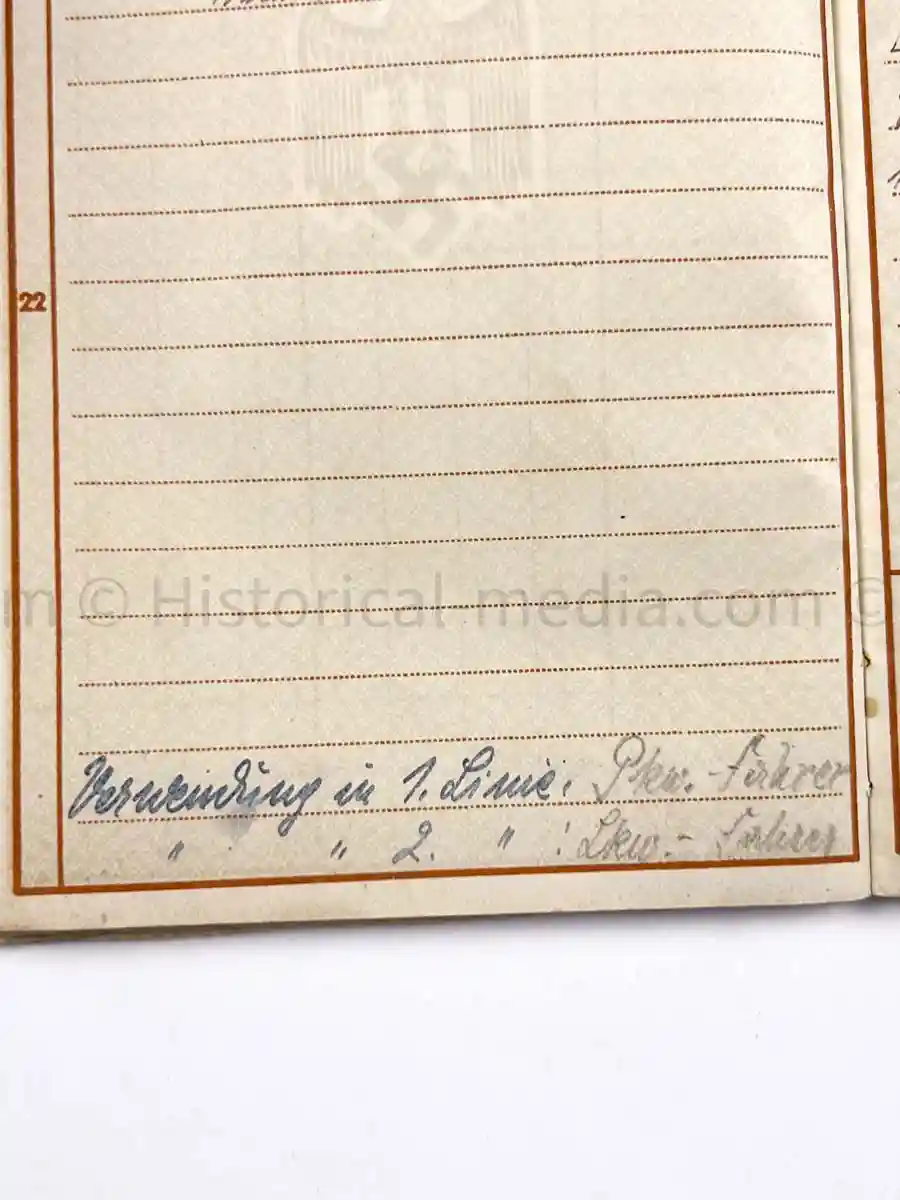 22
m © Historical-media.com ©
Verwendung in 1. Linie: Pkw.-Fahrer
" " 2. " : Lkw.-Fahrer